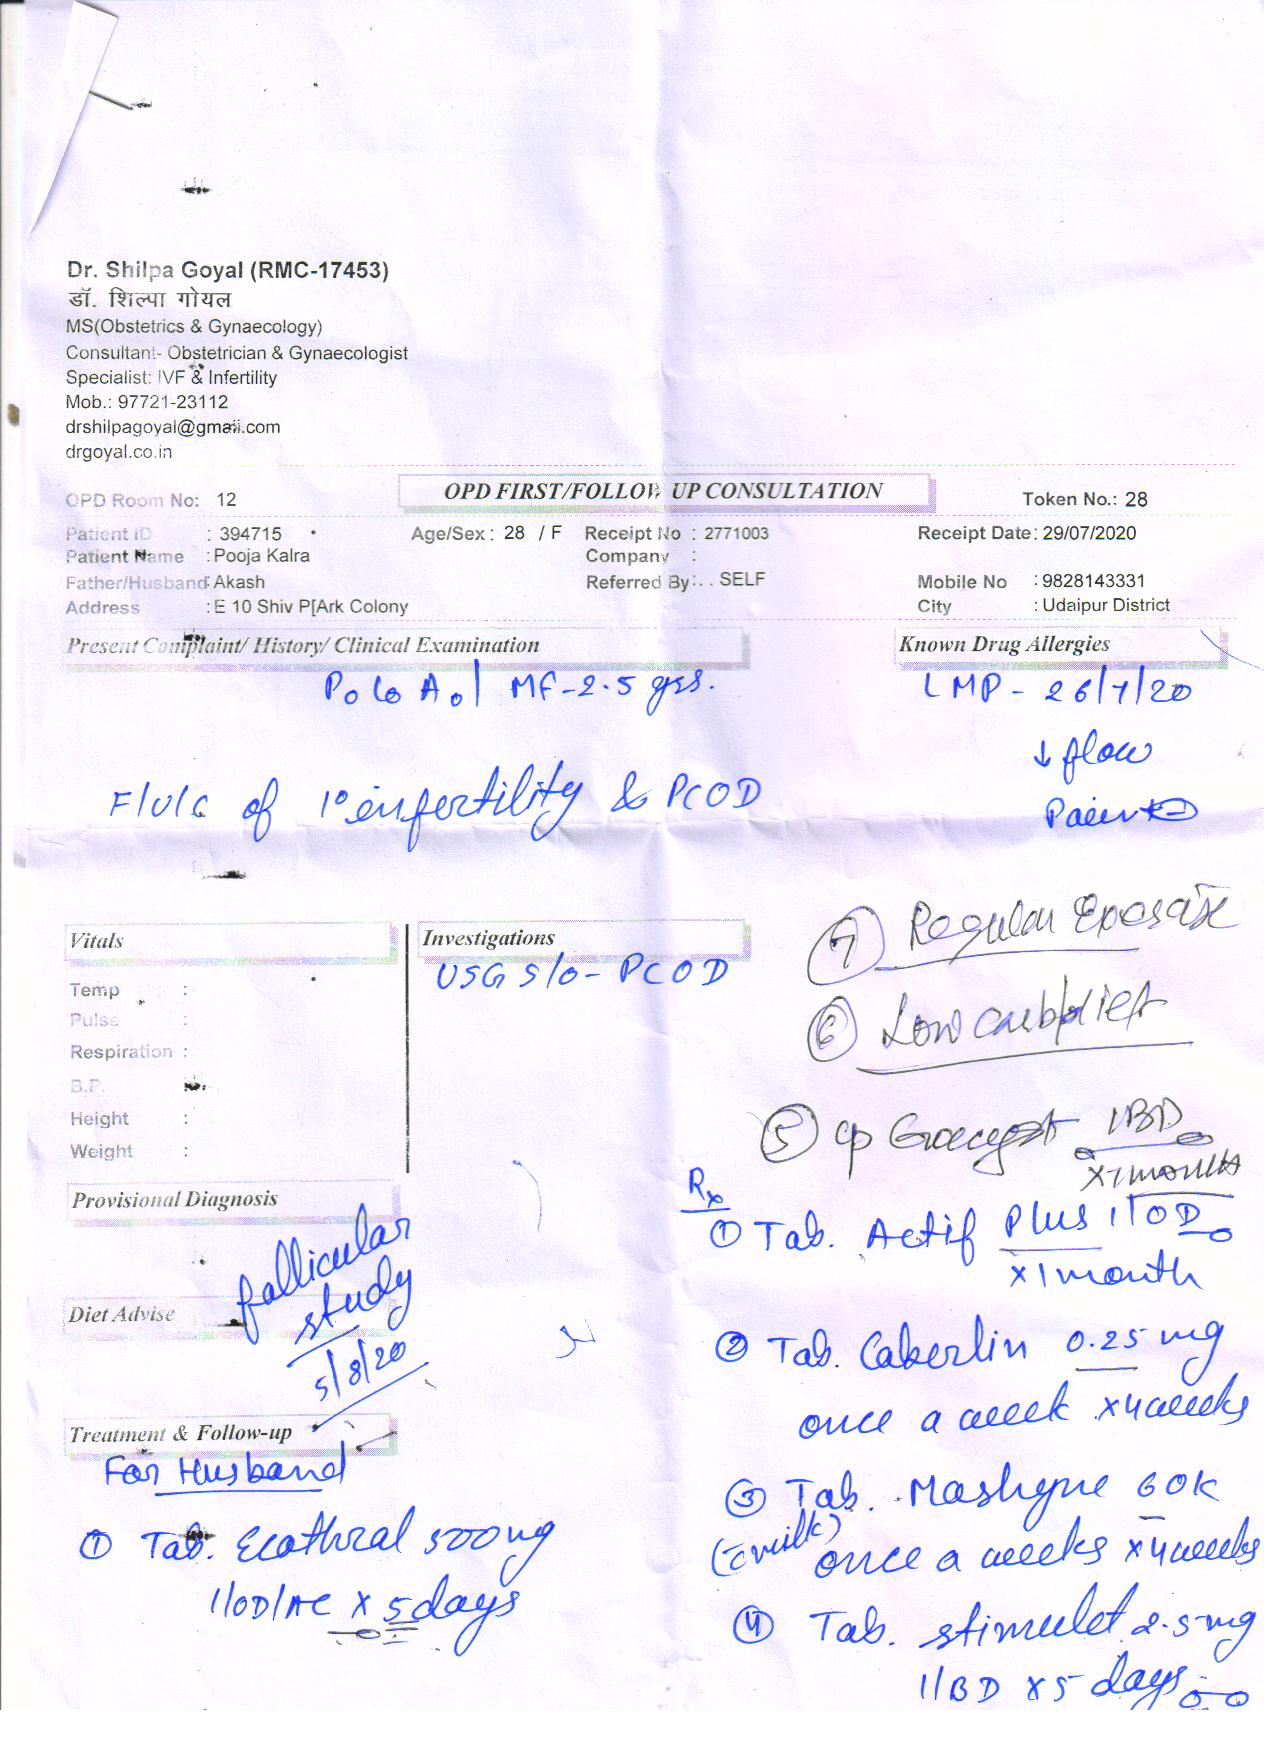 Dr. Shilpa Goyal (RMC-17453)
डॉ. शिल्पा गोयल
MS(Obstetrics & Gynaecology)
Consultant- Obstetrician & Gynaecologist
Specialist: IVF & Infertility
Mob.: 97721-23112
drshilpagoyal@gmail.com
drgoyal.co.in
OPD Room No: 12
OPD FIRST/FOLLOW UP CONSULTATION
Token No.: 28
Patient ID : 394715 Age/Sex : 28 / F Receipt No : 2771003 Receipt Date: 29/07/2020
Patient Name : Pooja Kalra Company :
Father/Husband: Akash Referred By: . . SELF Mobile No : 9828143331
Address : E 10 Shiv P[Ark Colony City : Udaipur District
Present Complaint/ History/ Clinical Examination
Known Drug Allergies
P0 L0 A0 | MF-2.5 yrs.
LMP - 26/7/20
↓ flow
F/U/C of 1° infertility & PCOD
Vitals
Temp :
Pulse :
Respiration :
B.P.
Height :
Weight :
Investigations
USG S/O - PCOD
Provisional Diagnosis
follicular
study
5/8/20
Diet Advise
Treatment & Follow-up
For Husband
① Tab. 500mg
1/OD/AC x 5 days
⑦ Regular
⑥ Low carb diet
⑤ cp 1BD
Rx
① Tab. Actif Plus 1/OD
x 1 month
② Tab. Caberlin 0.25 mg
once a week x 4 weeks
③ Tab. 60K
(c milk) once a weeks x 4 weeks
④ Tab. stimulet 2.5 mg
1/BD x 5 days